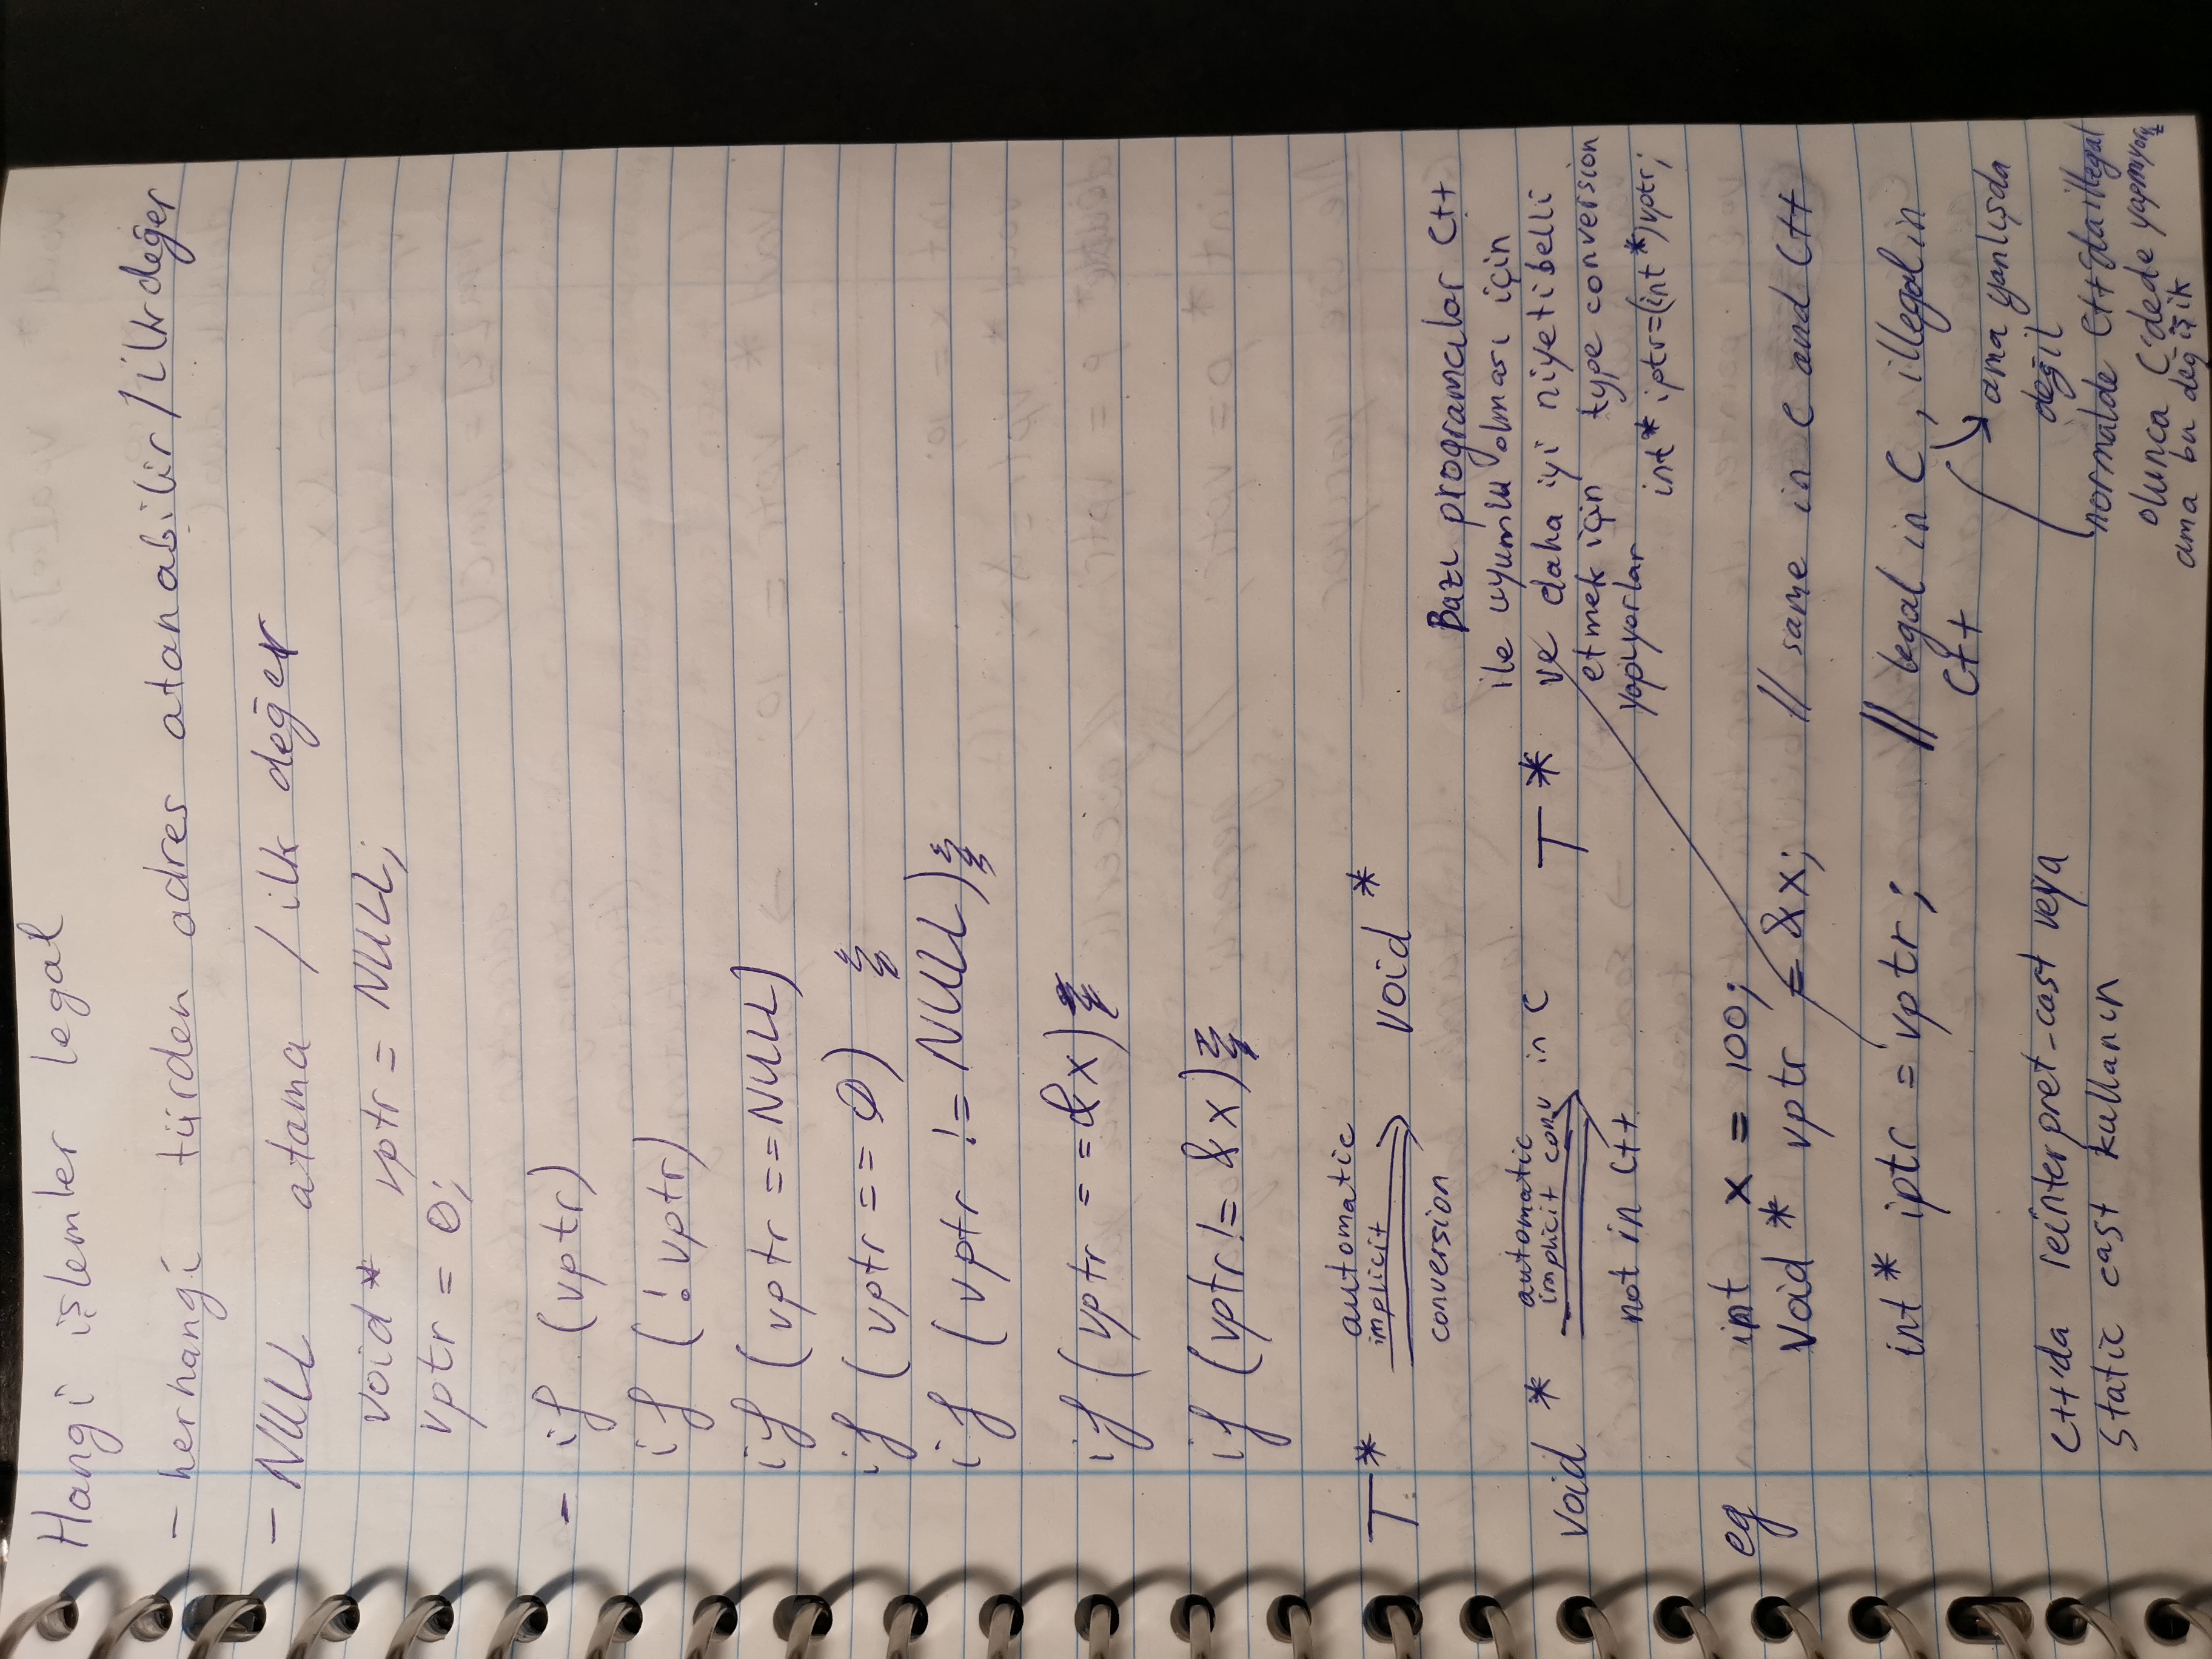 Hangi işlemler legal
- herhangi türden adres atanabilir / ilk değer
- NULL atama / ilk değer
void* vptr = NULL;
vptr = 0;
- if (vptr)
if (!vptr)
if (vptr ==NULL)
if (vptr == 0)
if (vptr != NULL)
if (vptr ==&x)
if (vptr != &x)
automatic
T* implicit void *
conversion
Bazı programcılar C++
ile uyumlu olması için
ve daha iyi niyeti belli
etmek için type conversion
yapıyorlar
int* iptr=(int*)vptr;
automatic
void * implicit conv in C T*
not in C++
eg int x = 100;
void * vptr = &x; // same in C and C++
int* iptr = vptr; // legal in C, illegal in
C++
ama yanlışda
değil
normalde C++'da illegal
olunca C'dede yapmıyoruz
ama bu değişik
C++'da reinterpret-cast veya
static cast kullanın